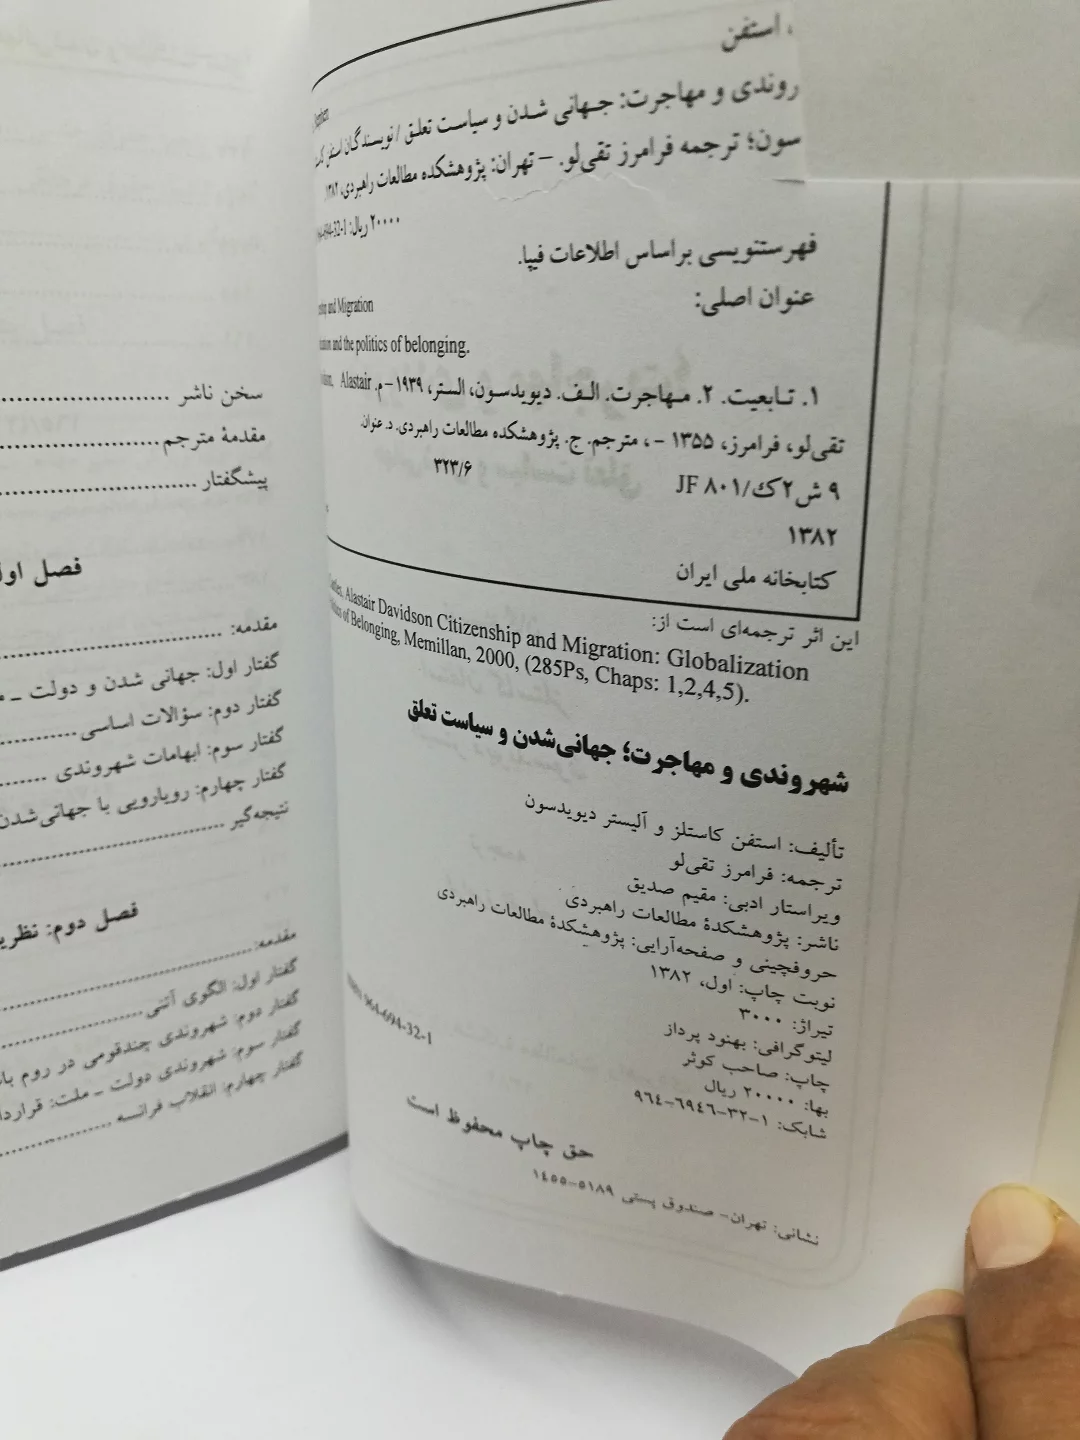 ، استفن
روندی و مهاجرت: جهانی شدن و سیاست تعلق / نویسندگان استفن
سون؛ ترجمه فرامرز تقی‌لو. – تهران: پژوهشکده مطالعات راهبردی، ۱۳۸۲.
۲۰۰۰۰ ریال: 694-32-1
فهرستنویسی براساس اطلاعات فیپا.
عنوان اصلی:
and Migration
and the politics of belonging.
۱. تابعیت. ۲. مهاجرت. الف. دیویدسون، الستر، ۱۹۳۹ – م. Alastair
تقی‌لو، فرامرز، ۱۳۵۵ – ، مترجم. ج. پژوهشکده مطالعات راهبردی. د. عنوان.
۹ ش ۲ک/ JF ۸۰۱ ۳۲۳/۶
۱۳۸۲
کتابخانه ملی ایران
این اثر ترجمه‌ای است از:
Alastair Davidson Citizenship and Migration: Globalization
of Belonging, Memillan, 2000, (285Ps, Chaps: 1,2,4,5).
شهروندی و مهاجرت؛ جهانی‌شدن و سیاست تعلق
تألیف: استفن کاستلز و آلیستر دیویدسون
ترجمه: فرامرز تقی‌لو
ویراستار ادبی: مقیم صدیق
ناشر: پژوهشکدهٔ مطالعات راهبردی
حروفچینی و صفحه‌آرایی: پژوهشکدهٔ مطالعات راهبردی
نوبت چاپ: اول، ۱۳۸۲
تیراژ: ۳۰۰۰
لیتوگرافی: بهنود پرداز
چاپ: صاحب کوثر
بها: ۲۰۰۰۰ ریال
شابک: ۱-۳۲-۶۹۴۶-۹۶۴
ISBN 964-694-32-1
حق چاپ محفوظ است
نشانی: تهران- صندوق پستی ۵۱۸۹-۱٤٥٥
سخن ناشر ........................
مقدمهٔ مترجم ........................
پیشگفتار ........................
فصل اول
مقدمه: ........................
گفتار اول: جهانی شدن و دولت ـ
گفتار دوم: سؤالات اساسی ............
گفتار سوم: ابهامات شهروندی .......
گفتار چهارم: رویارویی با جهانی‌شدن
نتیجه‌گیر ........................
فصل دوم:
مقدمه: ........................
گفتار اول: الگوی آتنی ................
گفتار دوم: شهروندی چندقومی در روم
گفتار سوم: شهروندی دولت ـ ملت:
گفتار چهارم: انقلاب فرانسه ............